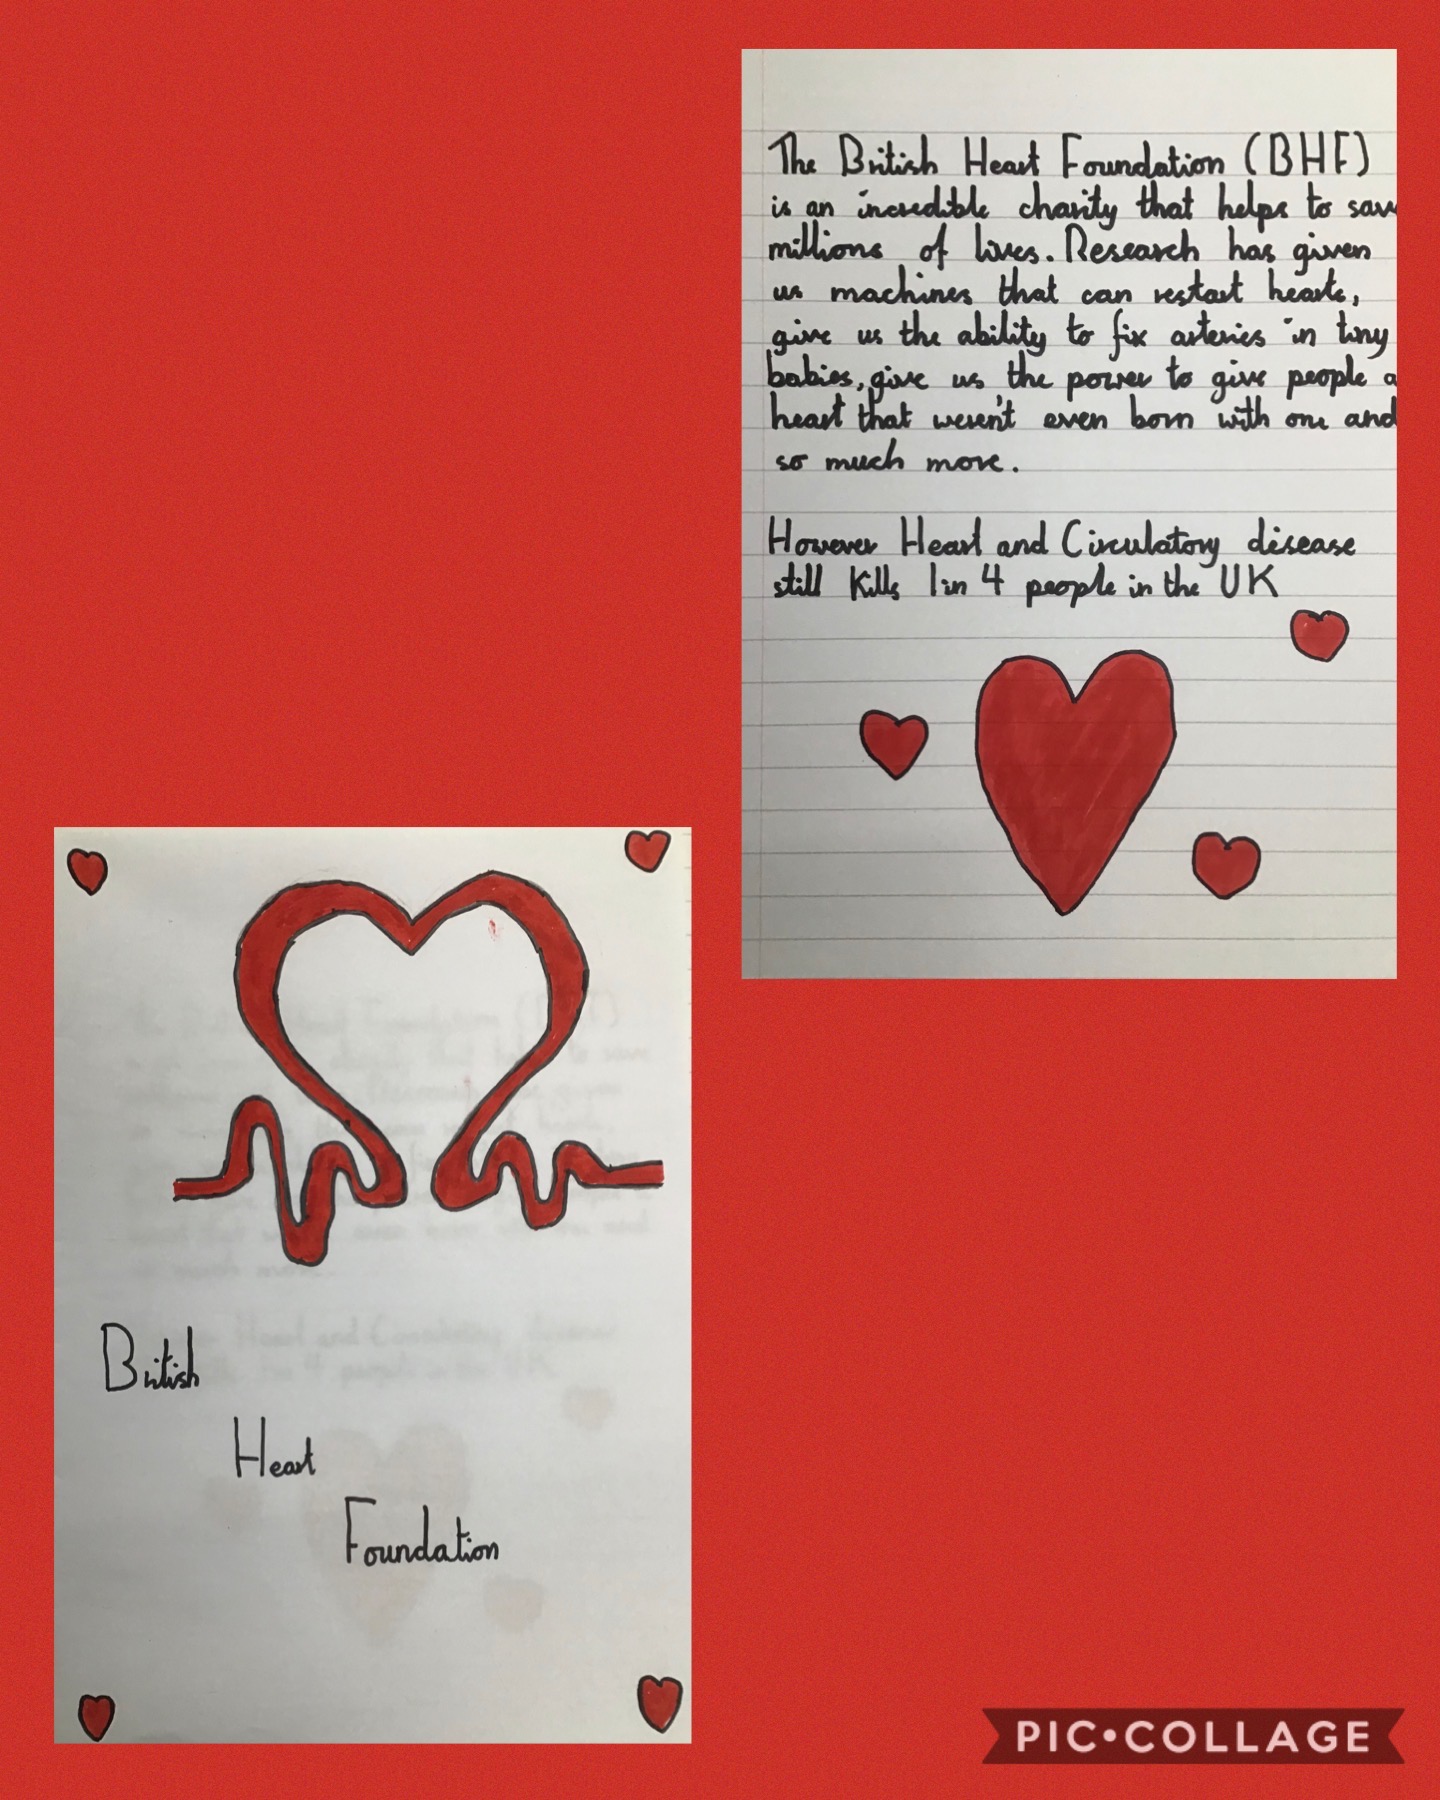 The British Heart Foundation (BHF)
is an incredible charity that helps to save
millions of lives. Research has given
us machines that can restart hearts,
give us the ability to fix arteries in tiny
babies, give us the power to give people a
heart that weren't even born with one and
so much more.
However Heart and Circulatory disease
still kills 1 in 4 people in the UK
British
Heart
Foundation
PIC•COLLAGE